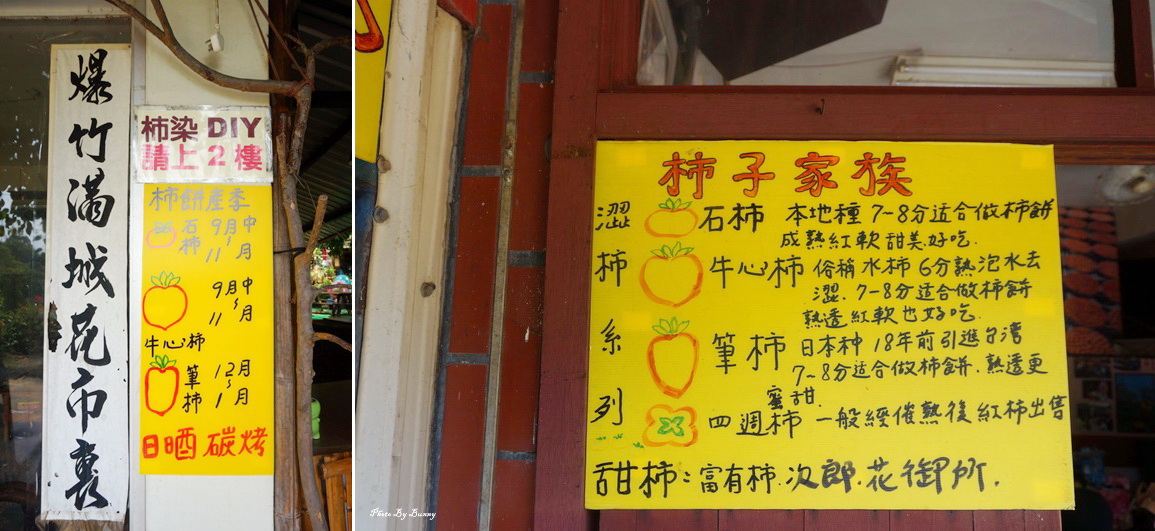 爆竹滿城花市裏
柿染 DIY
請上 2 樓
柿餅產季
石柿 9月中~11月
9月中~11月
牛心柿
筆柿 12月~1月
日晒 碳烤
柿子家族
澀柿系列
石柿 本地種 7-8分适合做柿餅
成熟紅軟甜美好吃.
牛心柿 俗稱水柿 6分熟泡水去
澀. 7-8分适合做柿餅
熟透紅軟也好吃.
筆柿 日本种 18年前引進台湾
7-8分适合做柿餅. 熟透更
蜜甜.
四週柿 一般經催熟後紅柿出售
甜柿: 富有柿. 次郎. 花御所.
Photo By Bunny